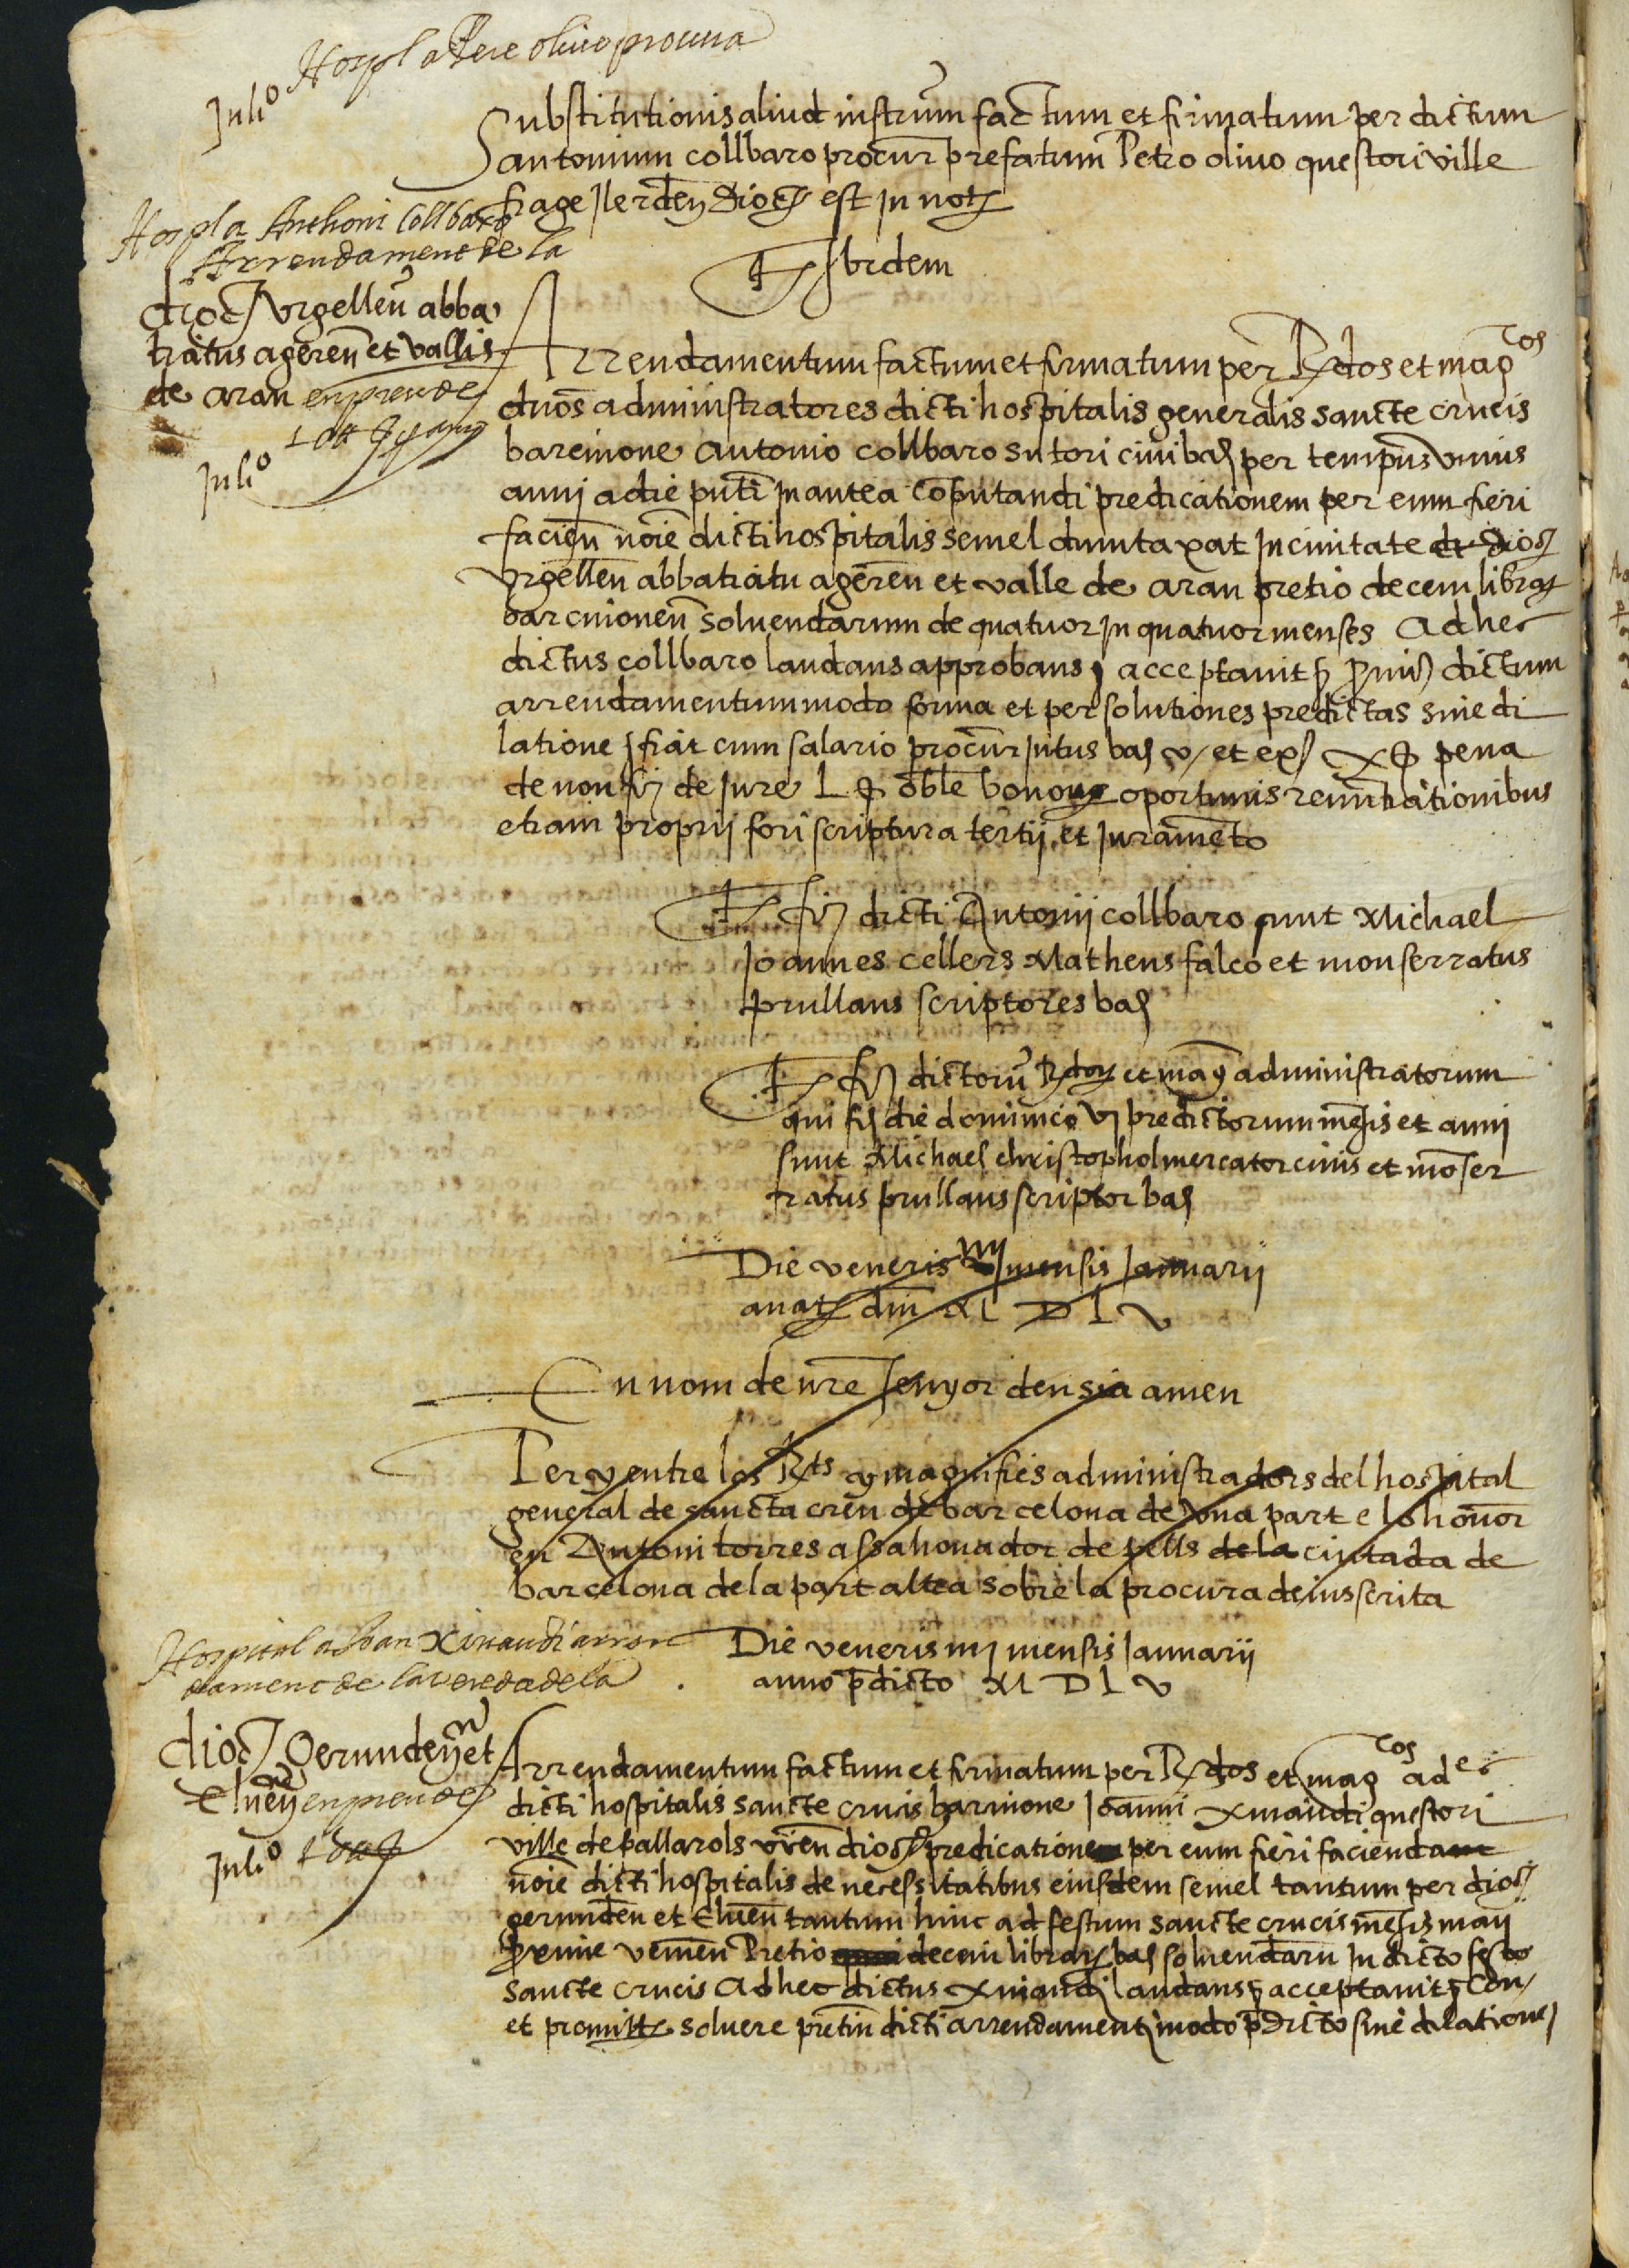 Hospl a Pere oliuo procura
Julio
Substitutionis aliud instrum factum et firmatum per dictum
antonium collbaro procur prefatum Petro oliuo questori ville
frage Ilerden dioc est in not
Hospl a Anthoni Collbaro
Arrendament de la
dioc Vrgellen abba
tiatus ageren et vallis
de aran enprende
Julio
Ts ibidem
Arrendamentum factum et firmatum per Rdos et magcos
duos administratores dicti hospitalis generalis sancte crucis
barcinone Antonio collbaro sutori ciui bar per tempus vnius
anni a die pnti in antea coputandi predicationem per eum fieri
facien noie dicti hospitalis semel dumtaxat in ciuitate et dioc
vrgellen abbatiatu ageren et valle de aran pretio decem librar
barcinonen soluendarum de quatuor in quatuor menses Ad hec
dictus collbaro laudans approbans acceptauit dictum
arrendamentum modo forma et per solutiones predictas sine di
latione fiat cum salario procur intus bar v et ex x pena
de non de jure L oble bonor oportunis renuntiationibus
etiam proprii fori scriptura tertii et juramento
Ts dicti Antonii collbaro sunt Michael
Joannes cellers Matheus falco et monserratus
prullans scriptores bar
Ts dictoru Rdor et mag administratorum
qui die dominico vj predictorum mesis et anni
sunt Michael christophol mercator ciuis et moser
ratus prullans scriptor bar
Die veneris iiij mensis Januarii
anat dni M D L v
En nom de nre senyor deu sia amen
Per y entre los Rts y magnifics administradors del hospital
general de sancta creu de barcelona de vna part e lo honor
en Antoni torres assahonador de pells de la ciutada de
barcelona de la part altra sobre la procura deius scrita
Hospital a Joan Ximandi arren
dament de la vereda de la
dioc Gerunden et
Elnen enprende
Julio
Die veneris iiij mensis Januarii
anno pdicto M D L v
Arrendamentum factum et firmatum per Rdos et magcos ades
dicti hospitalis sancte crucis barcinone Joanni Ximandi questori
ville de ballarols vicen dioc predicationem per eum fieri faciendam
noie dicti hospitalis de necessitatibus eiusdem semel tantum per dioc
gerunden et Elnen tantum hinc ad festum sancte crucis mesis maii
proxime venien Pretio decem librar bar soluendaru in dicto festo
sancte crucis Ad hec dictus Ximandi laudans acceptauit con
et promitt soluere pretiu dicti arrendamenti modo pdicto sine dilatione